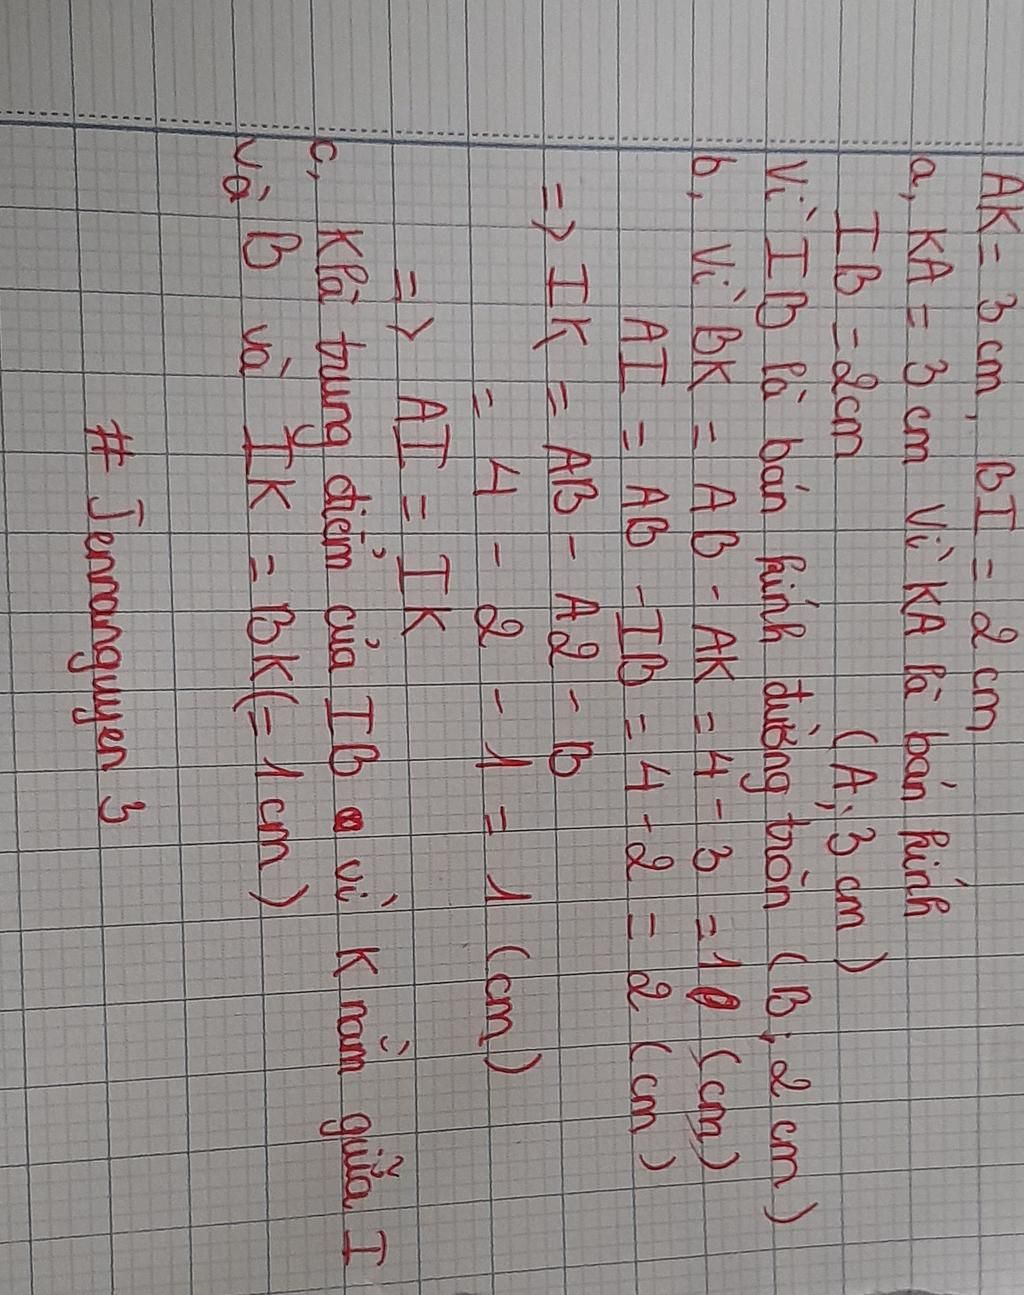 AK = 3 cm, BI = 2 cm
a, KA = 3 cm Vì KA là bán kính
IB = 2cm (A; 3 cm)
Vì IB là bán kính đường tròn (B; 2 cm)
b, Vì BK = AB - AK = 4 - 3 = 1 (cm)
AI = AB - IB = 4 - 2 = 2 (cm)
=> IK = AB - A2 - B
= 4 - 2 - 1 = 1 (cm)
=> AI = IK
c, K là trung điểm của IB vì K nằm giữa I
và B và IK = BK (= 1 cm)
# Jennanguyen 3